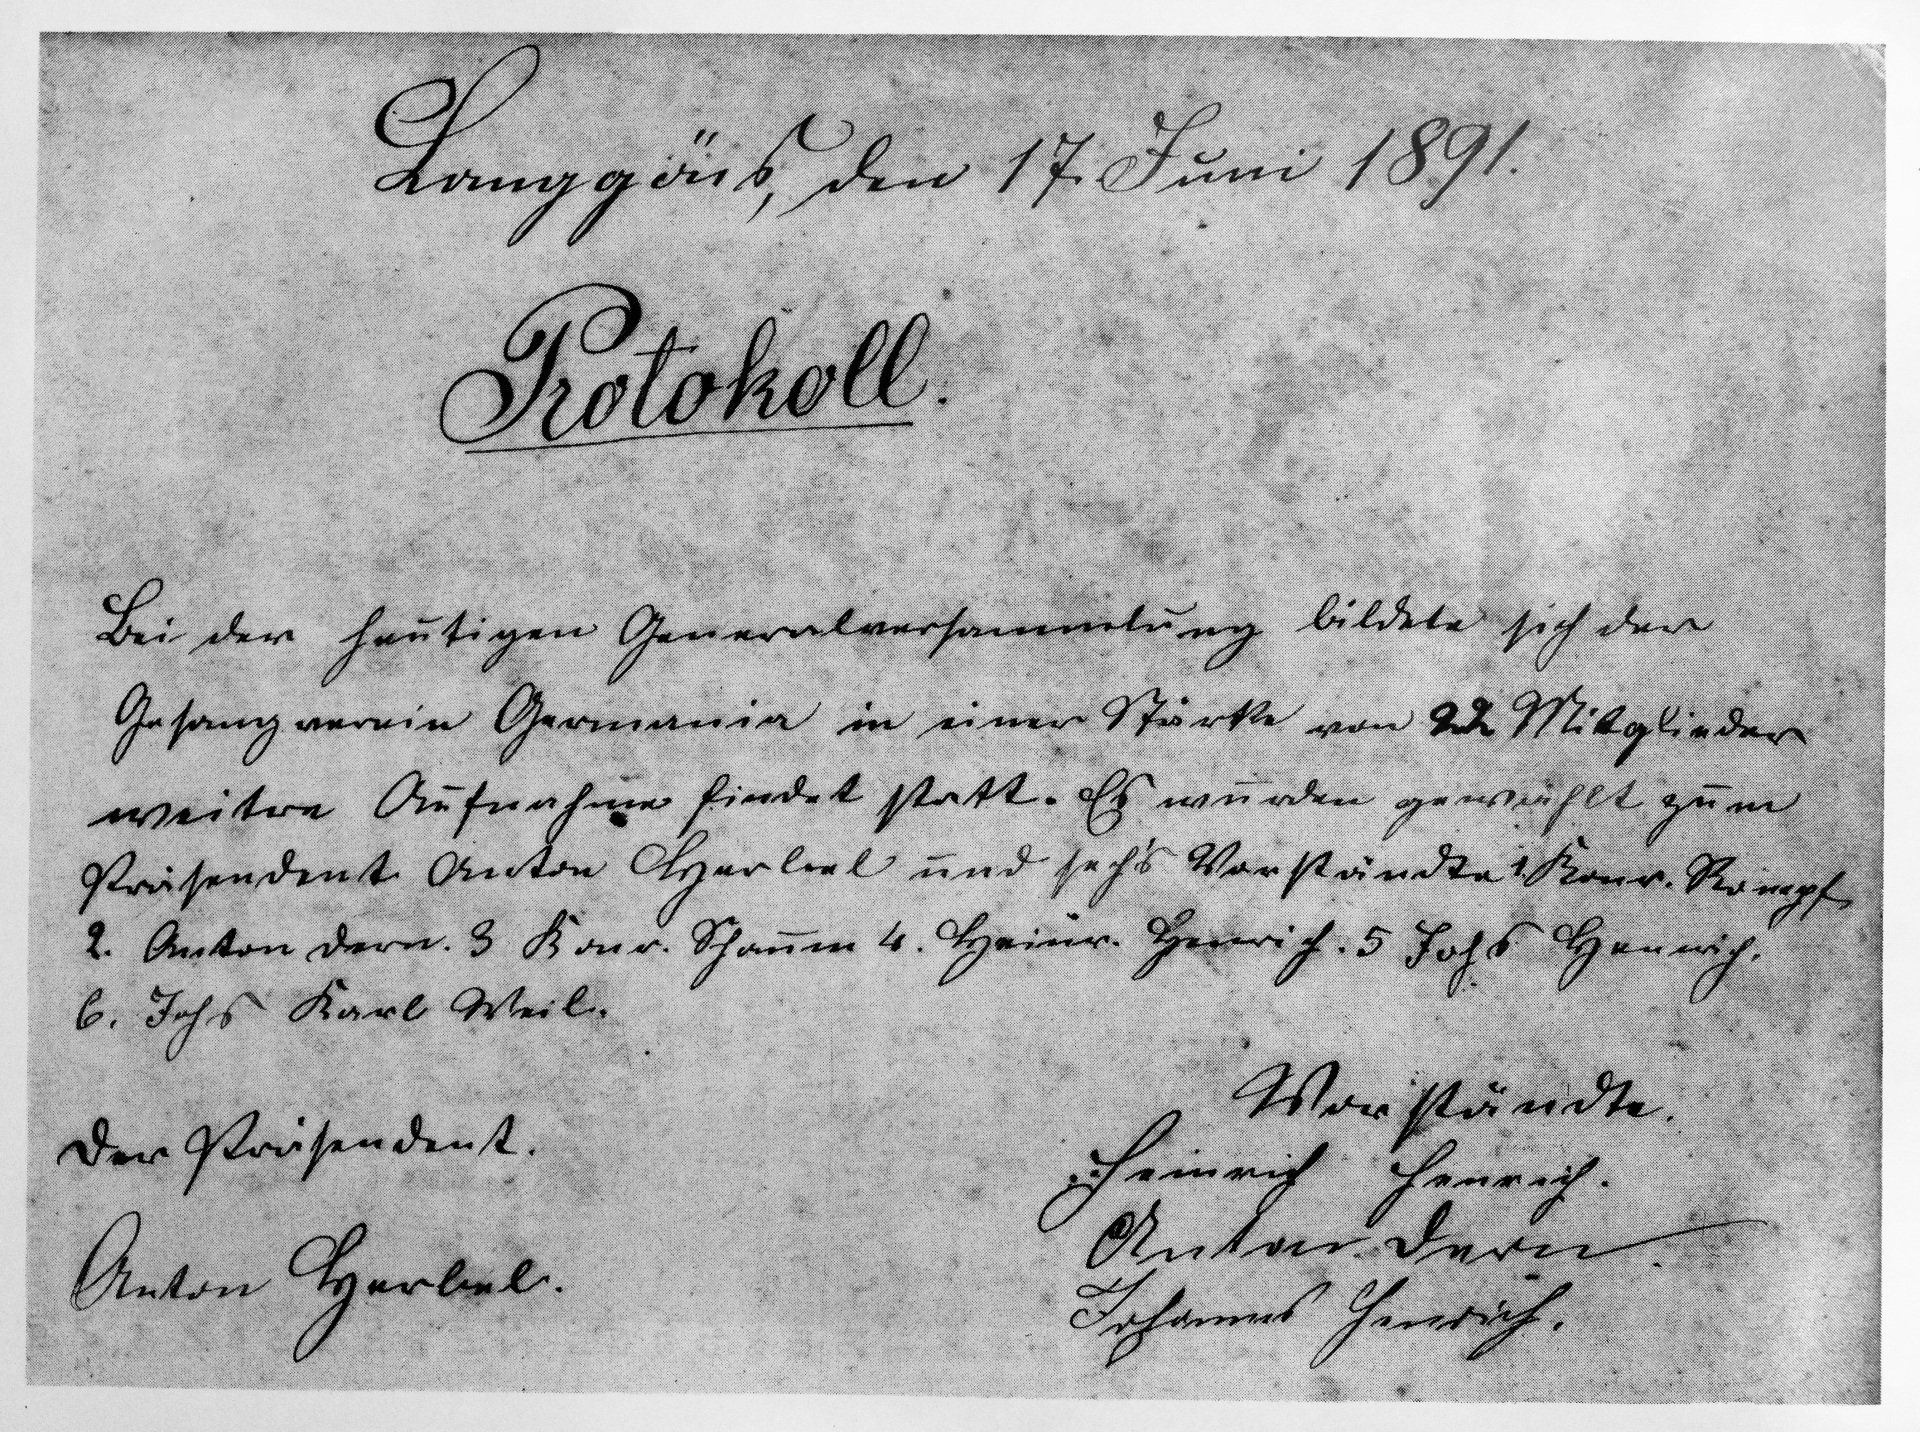 Langgöns, den 17. Juni 1891.
Protokoll.
Bei der heutigen Generalversammlung bildete sich der
Gesangverein Germania in einer Stärke von 22 Mitglieder
weitre Aufnahme findet statt. Es wurden gewählt zum
Präsendent Anton Herbel und sechs Vorständte 1. Konr. Rompf
2. Anton Dern. 3 Konr. Schaum 4. Heinr. Henrich. 5 Johs Henrich.
6. Johs Karl Weil.
Vorständte.
Der Präsendent.
Heinrich Henrich.
Anton Dern.
Anton Herbel.
Johannes Henrich.